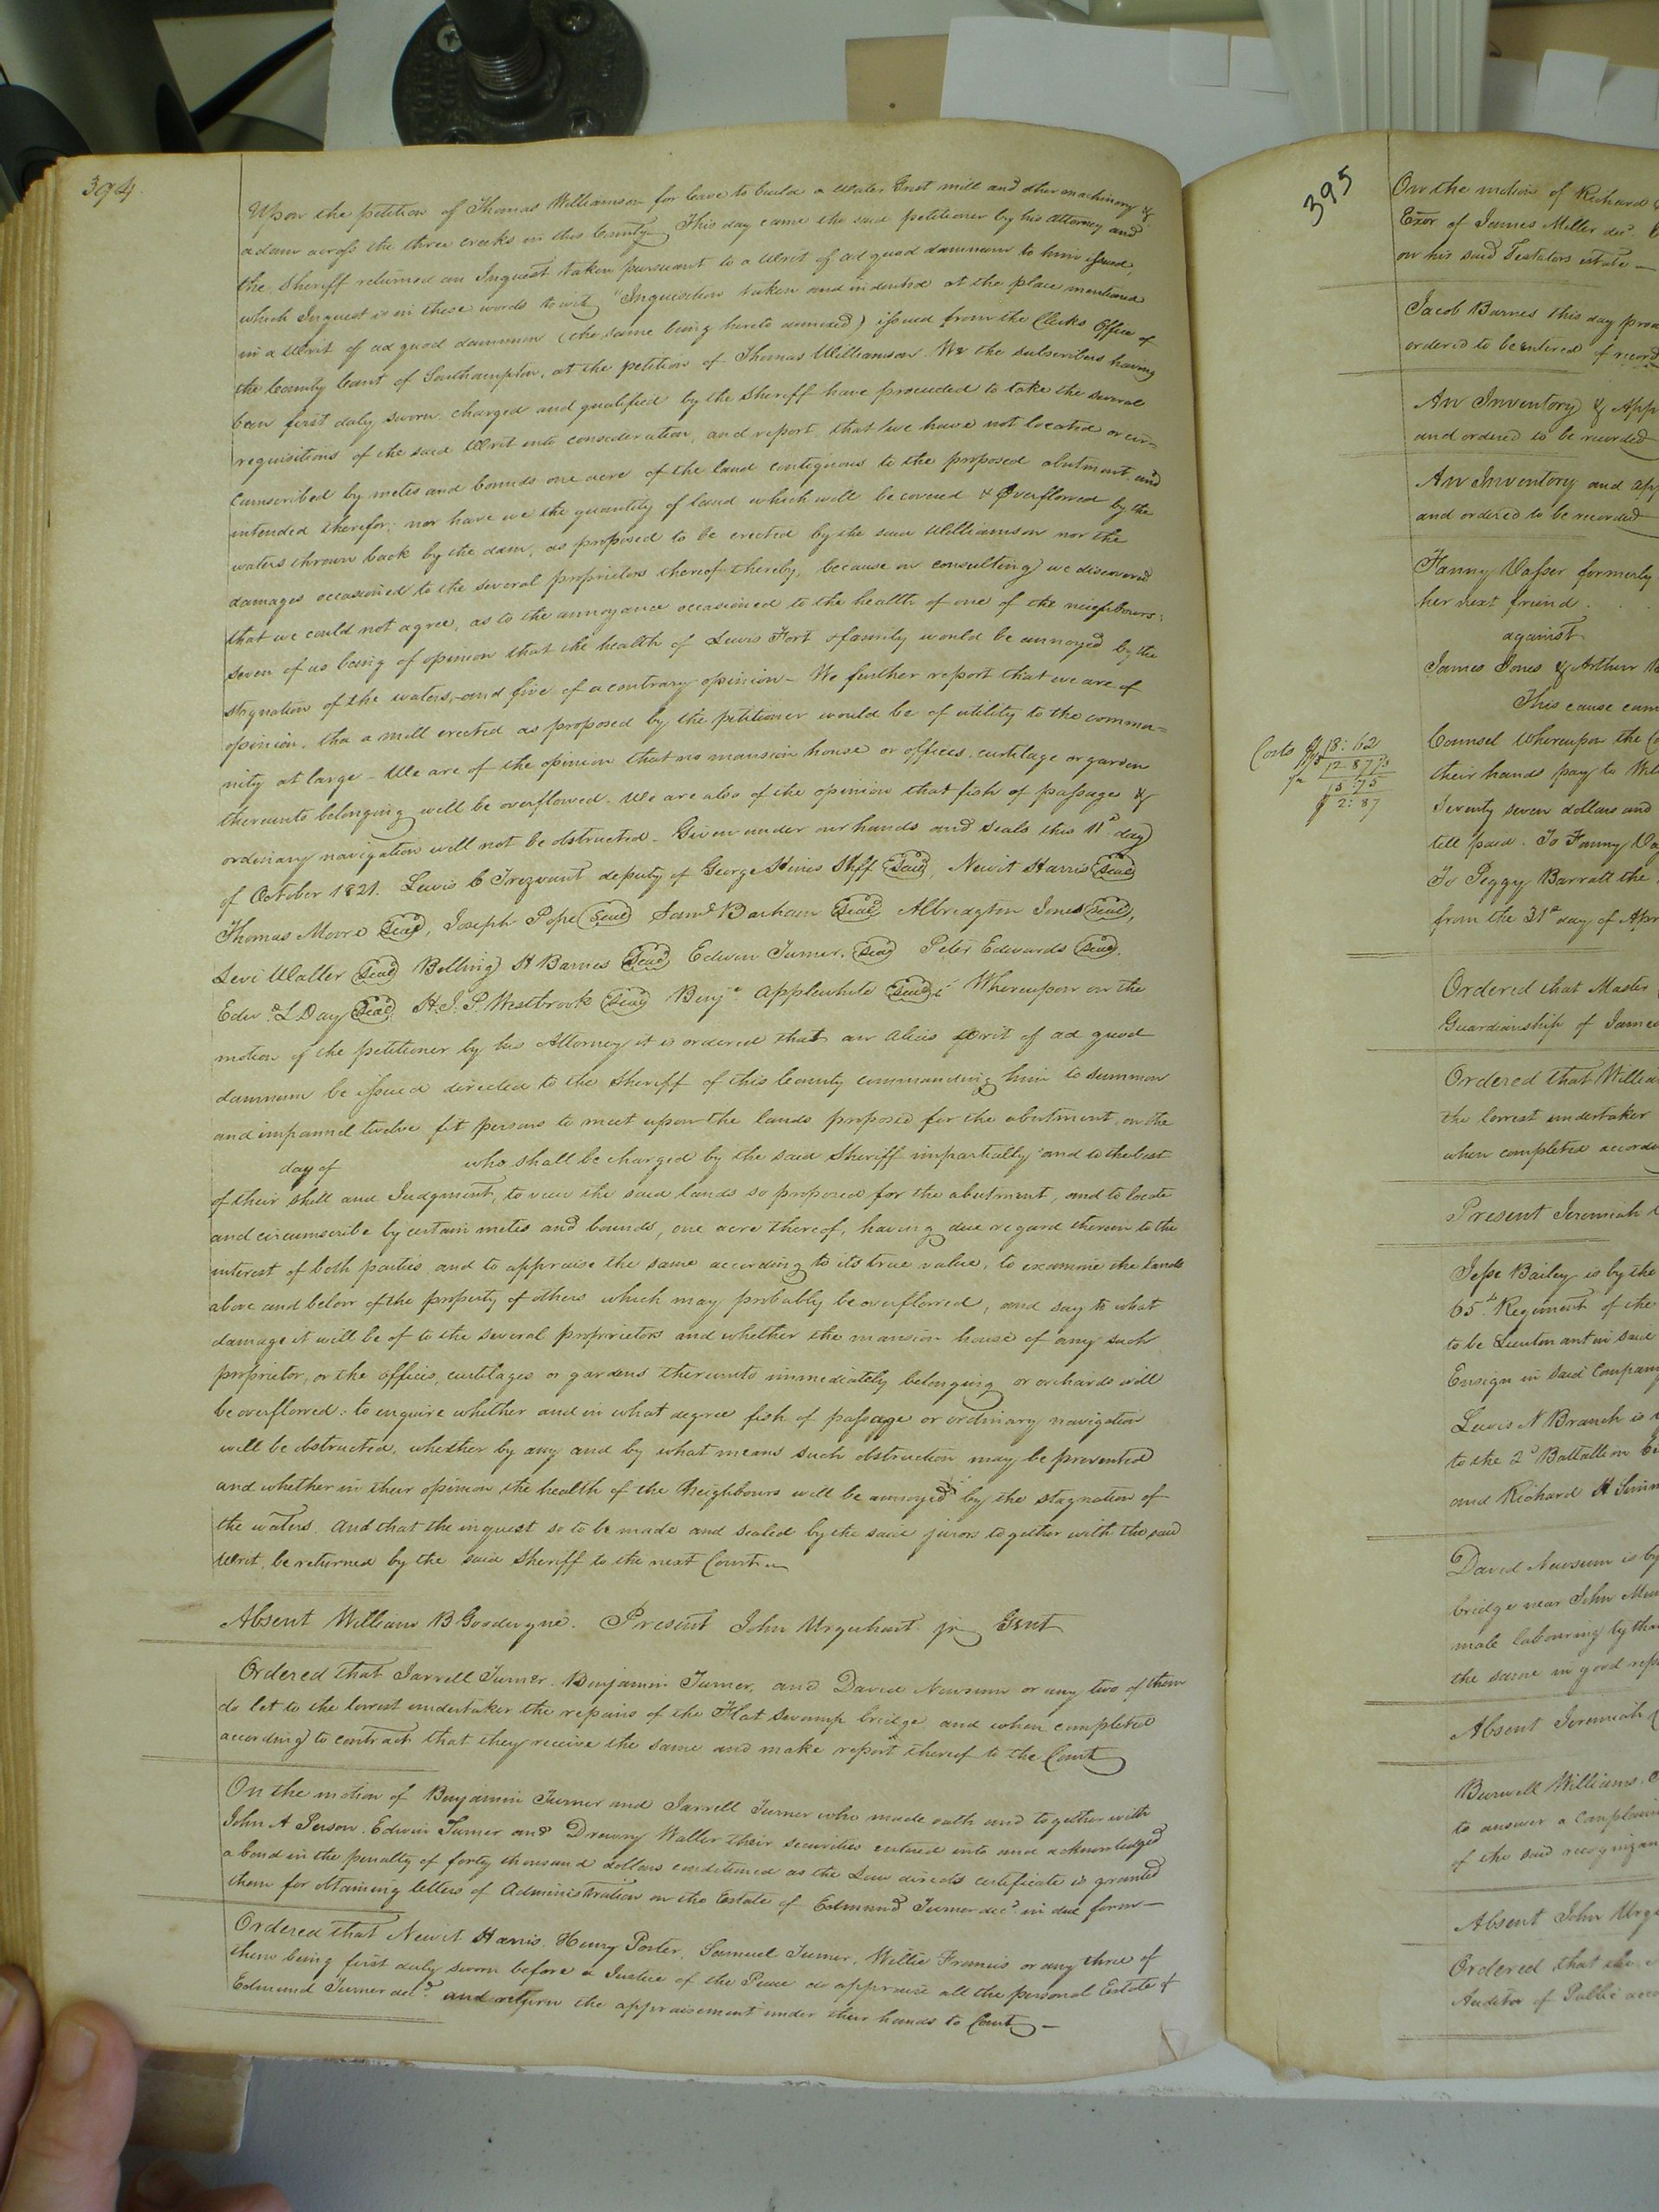 394.
Upon the petition of Thomas Williamson for leave to build a Water Grist mill and other machinery &
a dam across the three creeks in this County. This day came the said petitioner by his attorney and
the Sheriff returned an Inquest taken pursuant to a Writ of ad quod damnum to him issued,
which Inquest is in these words towit "Inquisition taken and indented at the place mentioned
in a Writ of ad quod damnum (the same being hereto annexed) issued from the Clerks Office of
the County Court of Southampton, at the petition of Thomas Williamson. We the subscribers having
been first duly sworn charged and qualified by the Sheriff have proceeded to take the several
requisitions of the said Writ into consideration, and report that we have not located or cir-
cumscribed by metes and bounds one acre of the land contiguous to the proposed abutment and
intended therefor; nor have we the quantity of land which will be covered & Overflowed by the
waters thrown back by the dam, as proposed to be erected by the said Williamson nor the
damages occasioned to the several proprietors thereof thereby, because on consulting we discovered
that we could not agree, as to the annoyance occasioned to the health of one of the neighbours;
seven of us being of opinion that the health of Lewis Fort & family would be annoyed by the
stagnation of the waters, and five of a contrary opinion - We further report that we are of
opinion, tha a mill erected as proposed by the petitioner would be of utility to the commu-
nity at large - We are of the opinion that no mansion house or offices, curtilage or garden
thereunto belonging will be overflowed. We are also of the opinion that fish of passage &
ordinary navigation will not be obstructed - Given under our hands and seals this 11th day
of October 1821. Lewis C Trezvant deputy of George Hines Shff Seal, Newit Harris Seal
Thomas Moore Seal, Joseph Pope Seal Saml Barham Seal, Albridgton Jones Seal,
Levi Waller Seal Bolling H Barnes Seal Edwin Turner. Seal Peter Edwards Seal.
Edwd L Day Seal. H. J. P. Westbrook Seal Benja Applewhite Seal" Whereupon on the
motion of the petitioner by his Attorney it is ordered that an alias Writ of ad quod
damnum be issued directed to the Sheriff of this County commanding him to summon
and impannel twelve fit persons to meet upon the lands proposed for the abutment, on the
day of who shall be charged by the said Sheriff impartially and to the best
of their skill and Judgment, to view the said lands so proposed for the abutment, and to locate
and circumscribe by certain metes and bounds, one acre thereof, having due regard therein to the
interest of both parties and to appraise the same according to its true value, to examine the lands
above and below of the property of others which may probably be overflowed, and say to what
damage it will be of to the several proprietors and whether the mansion house of any such
proprietor, or the offices, curtilages or gardens thereunto immediately belonging or orchards will
be overflowed: to enquire whether and in what degree fish of passage or ordinary navigation
will be obstructed, whether by any and by what means such obstruction may be prevented
and whether in their opinion the health of the Neighbours will be annoyed by the stagnation of
the waters. And that the inquest so to be made and sealed by the said jurors together with the said
Writ, be returned by the said Sheriff to the next Court
Absent William B Goodwyne. Present John Urquhart jr Gent
Ordered that Jarrell Turner. Benjamin Turner, and David Newsum or any two of them
do let to the lowest undertaker the repairs of the Flat Swamp bridge and when completed
according to contract that they receive the same and make report thereof to the Court
On the motion of Benjamin Turner and Jarrell Turner who made oath and together with
John A Person. Edwin Turner and Drewry Waller their securities entered into and acknowledged
a bond in the penalty of forty thousand dollars conditioned as the Law directs certificate is granted
them for obtaining letters of Administration on the Estate of Edmund Turner decd in due form -
Ordered that Newit Harris. Henry Porter, Samuel Turner, Willie Francis or any three of
them being first duly sworn before a Justice of the Peace do appraise all the personal Estate of
Edmund Turner decd and return the appraisement under their hands to Court -
395
On the motion of Richard
Exor of James Miller decd.
on his said Testators estate -
Jacob Barnes this day
ordered to be entered of record
An Inventory & App
and ordered to be recorded
An Inventory and app
and ordered to be recorded
Fanny Vasser formerly
her next friend.
against
James Jones & Arthur
This cause cam
Costs
18:62
2.87
15.75
2:87
Counsel Whereupon the
their hands pay to Wil
Seventy seven dollars and
till paid. To Fanny
To Peggy Barratt the
from the 31st day of
Ordered that Master
Guardianship of James
Ordered that William
the lowest undertaker
when completed accord
Present Jeremiah
Jesse Bailey is by the
65th Regiment of the
to be Lieutenant in said
Ensign in said Company
Lewis N Branch is
to the 2d Battallion
and Richard H Simm
David Newsum is by
bridge near John
male labouring
the same in good rep
Absent Jeremiah
Burwell Williams.
to answer a complain
of the said recognizan
Absent John Urq
Ordered that the
Auditor of Public acc